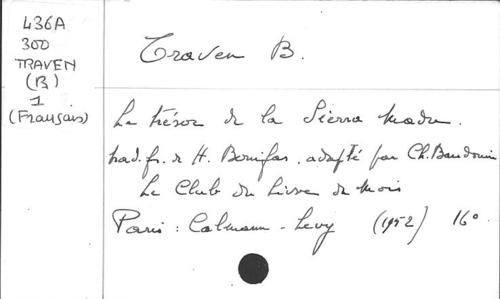 436A
300
TRAVEN
(B)
1
(Français)
Traven B.
Le trésor de la Sierra Madre.
trad. fr. de H. Bonifas, adapté par Ch. Baudouin
Le Club du Livre du Mois
Paris : Calmann-Levy (1952] 16°